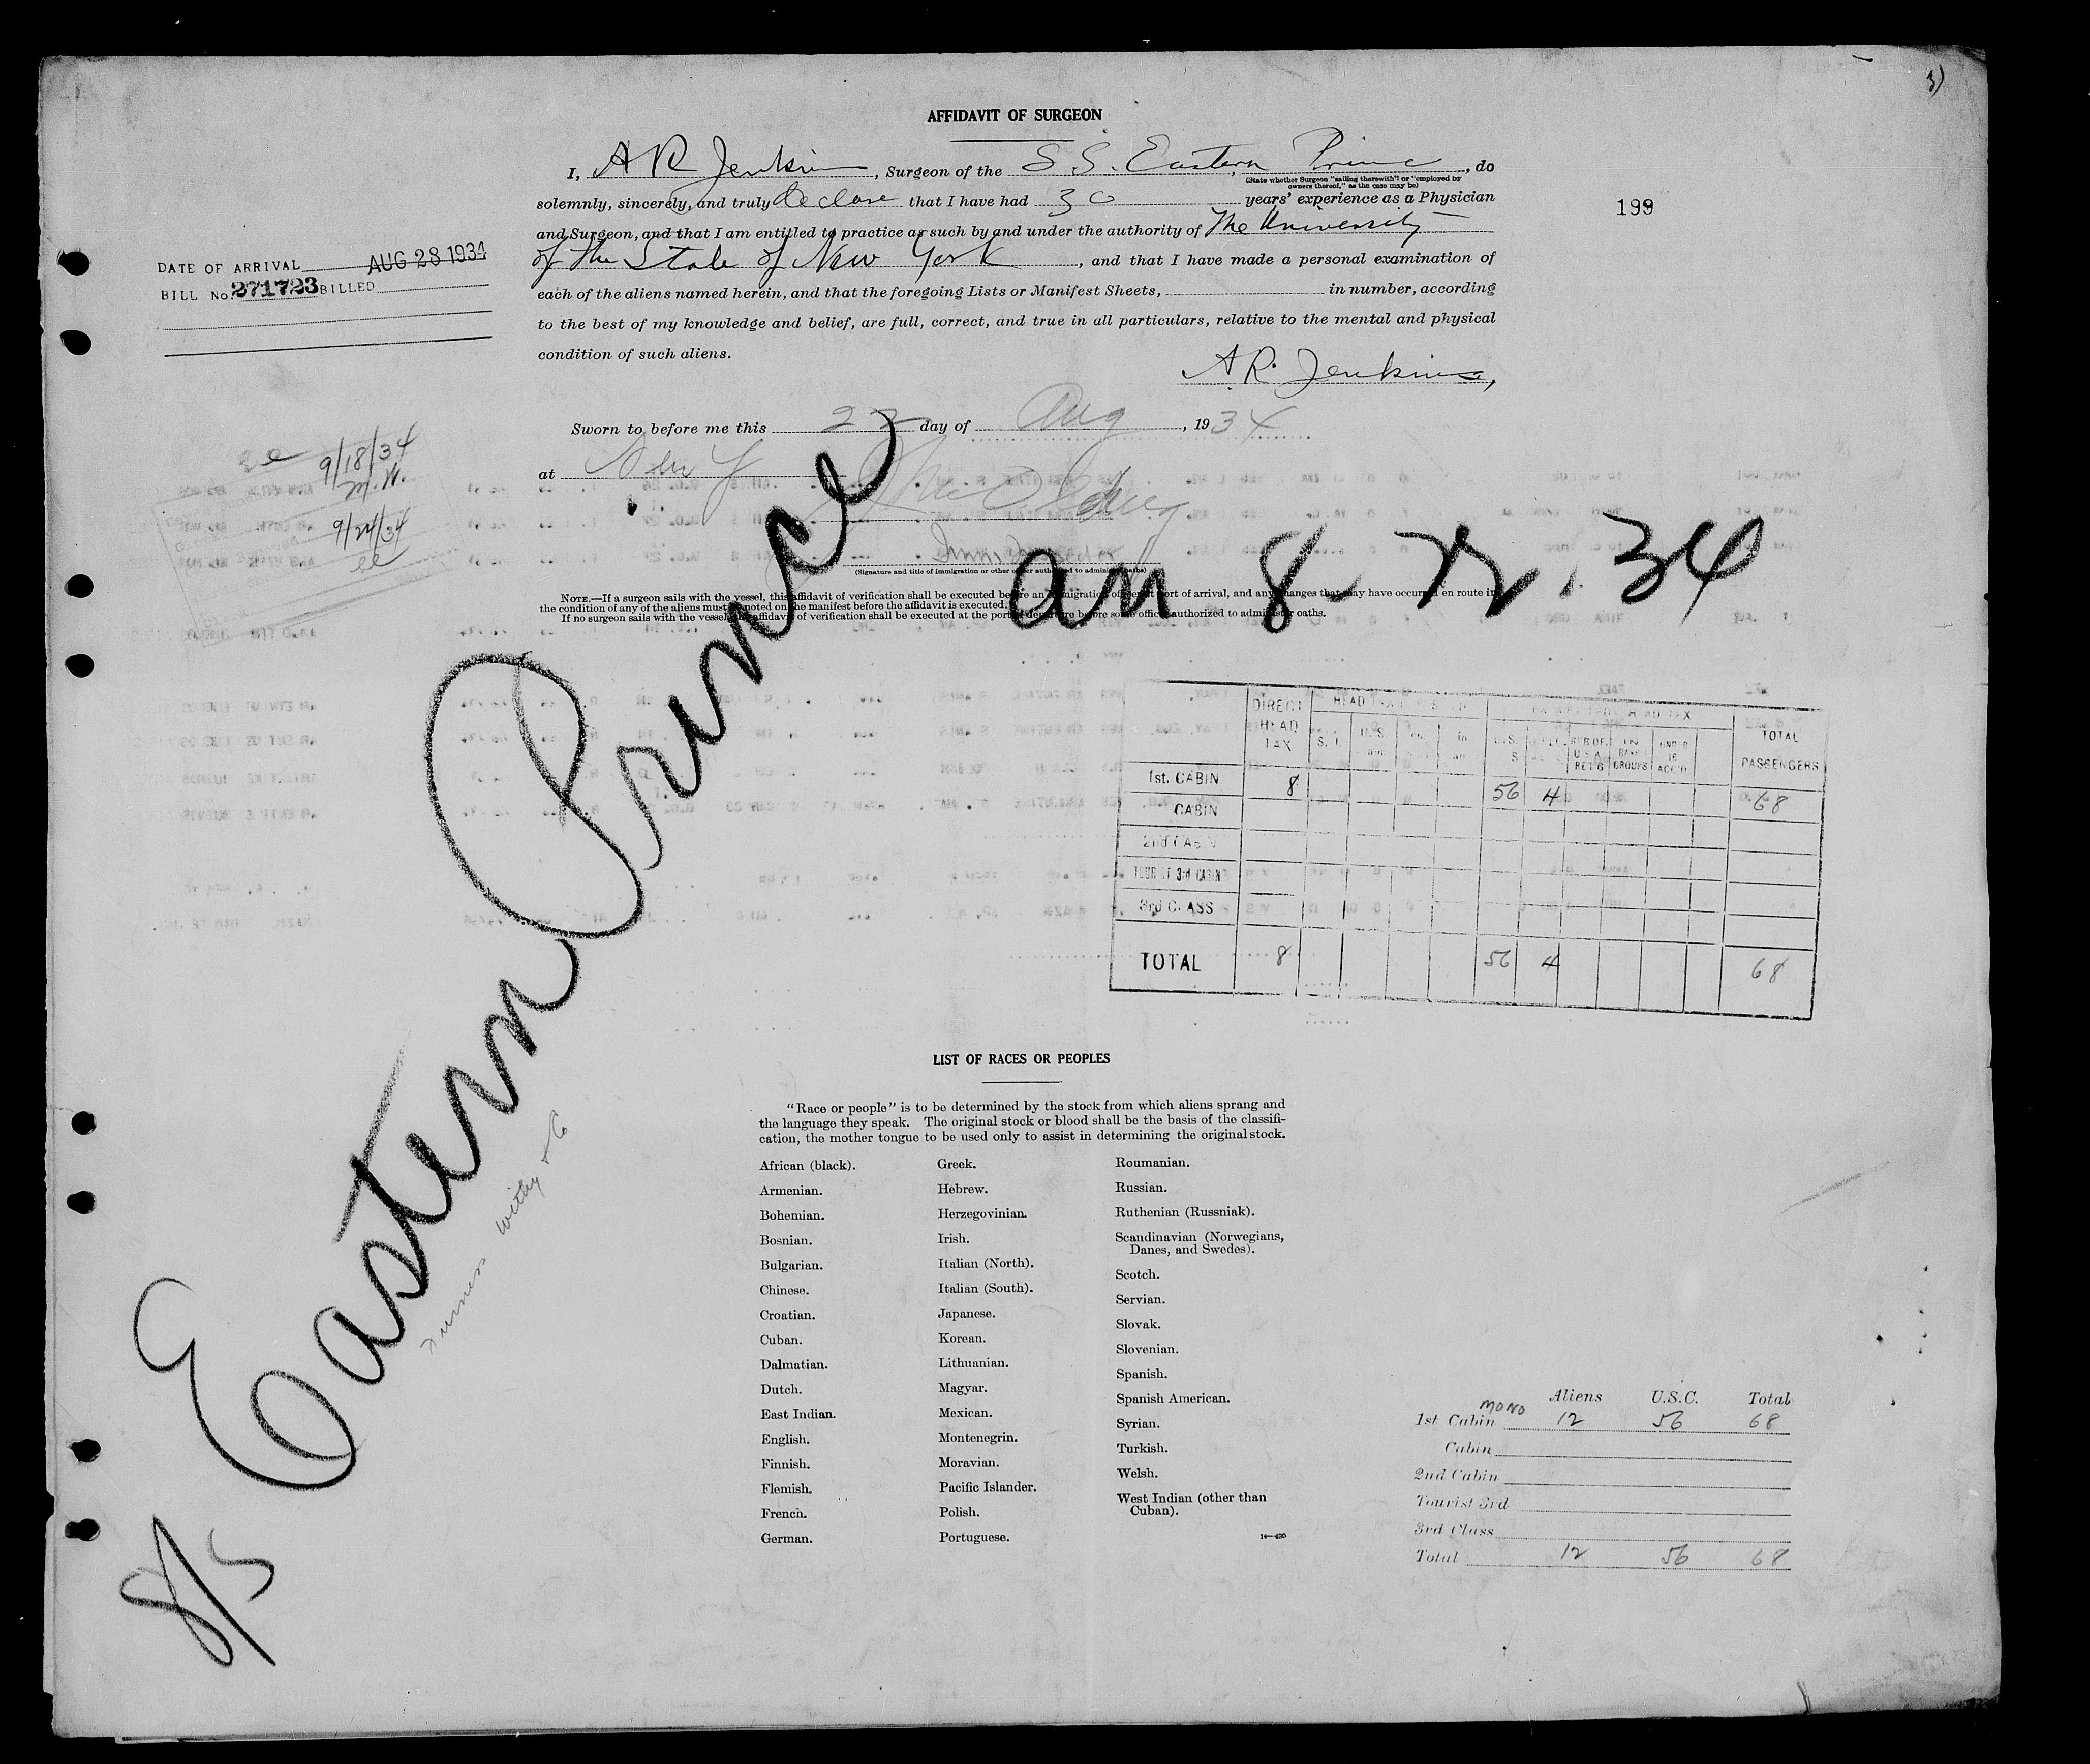 3)
AFFIDAVIT OF SURGEON
I, A R Jenkins, Surgeon of the S.S. Eastern Prince, do
(State whether Surgeon "sailing therewith" or "employed by
owners thereof," as the case may be)
solemnly, sincerely, and truly declare that I have had 30 years' experience as a Physician
199
and Surgeon, and that I am entitled to practice as such by and under the authority of The University
of the State of New York, and that I have made a personal examination of
each of the aliens named herein, and that the foregoing Lists or Manifest Sheets, in number, according
to the best of my knowledge and belief, are full, correct, and true in all particulars, relative to the mental and physical
condition of such aliens.
A.R. Jenkins,
DATE OF ARRIVAL AUG 28 1934
BILL No. 271723 BILLED
Sworn to before me this day of Aug, 1934
at New Y
9/18/34
M.W.
9/24/34
ee
(Signature and title of immigration or other officer authorized to administer oaths)
NOTE.—If a surgeon sails with the vessel, this affidavit of verification shall be executed before an immigration officer at port of arrival, and any changes that may have occurred en route in
the condition of any of the aliens must be noted on the manifest before the affidavit is executed.
If no surgeon sails with the vessel, the affidavit of verification shall be executed at the port of departure before some officer authorized to administer oaths.
Eastern Prince
an 8-28.34
Furness Withy & Co
8/5
DIRECT HEAD TAX HEAD TAX TOTAL PASSENGERS
1st. CABIN 8 56 4 68
CABIN
2nd CABIN
TOURIST 3rd CABIN
3rd CLASS
TOTAL 8 56 4 68
LIST OF RACES OR PEOPLES
"Race or people" is to be determined by the stock from which aliens sprang and
the language they speak. The original stock or blood shall be the basis of the classifi-
cation, the mother tongue to be used only to assist in determining the original stock.
African (black).
Armenian.
Bohemian.
Bosnian.
Bulgarian.
Chinese.
Croatian.
Cuban.
Dalmatian.
Dutch.
East Indian.
English.
Finnish.
Flemish.
French.
German.
Greek.
Hebrew.
Herzegovinian.
Irish.
Italian (North).
Italian (South).
Japanese.
Korean.
Lithuanian.
Magyar.
Mexican.
Montenegrin.
Moravian.
Pacific Islander.
Polish.
Portuguese.
Roumanian.
Russian.
Ruthenian (Russniak).
Scandinavian (Norwegians,
Danes, and Swedes).
Scotch.
Servian.
Slovak.
Slovenian.
Spanish.
Spanish American.
Syrian.
Turkish.
Welsh.
West Indian (other than
Cuban).
Aliens U.S.C. Total
MONO
1st Cabin 12 56 68
Cabin
2nd Cabin
Tourist 3rd
3rd Class
Total 12 56 68